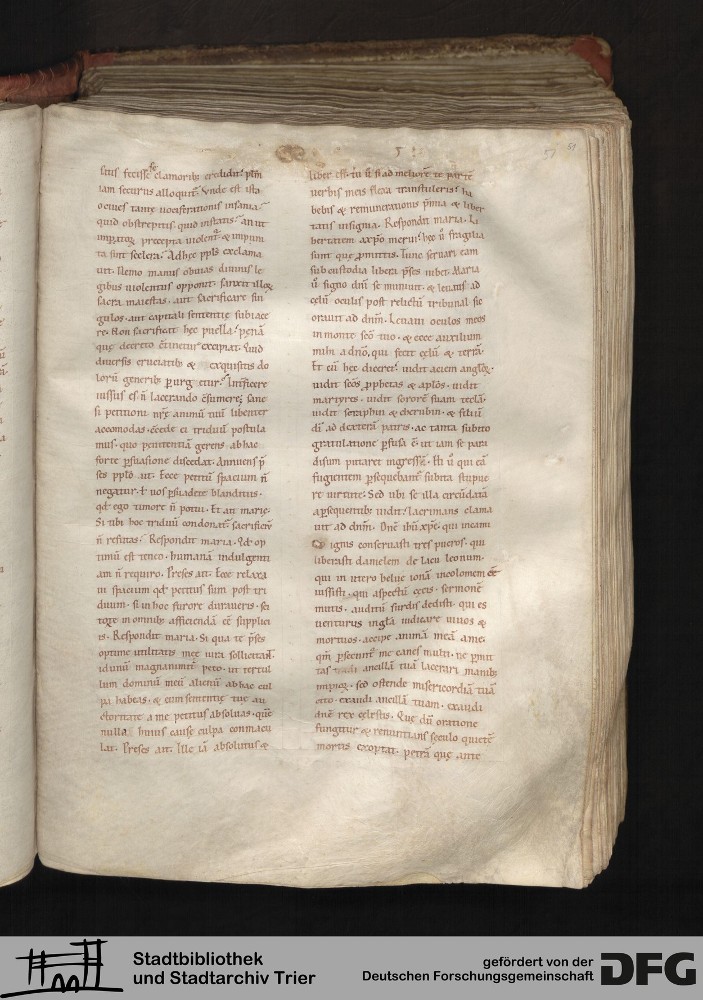 satis fecisse clamorib; credidit. p̃lm
iam securus alloquit̃. Vnde est ista
o ciues tantę uociferationis insania?
quid obstrepitis, quid instatis? an ut
imꝑatoꝝ precepta uiolent̃ & impuni
ta sint scelera? Ad hęc ppl̃s exclama
uit. Nemo manus obuias diuinis le
gibus uiolentus opponit. sanxit illoꝝ
sacra maiestas. aut sacrificare sin
gulos. aut capitali sententię subiace
re. Non sacrificat hęc puella? penã
quę decreto c̃tinetur excipiat. Quid
diuersis cruciatib; & exquisitis do
lorũ generib; ꝑurgetur?
iussus es ñ lacerando c̃sumere; sane
si petitioni nr̃ę animũ tuũ libenter
accomodas. c̃cede ei triduũ postula
mus. quo penitentiã gerens ab hac
forte ꝑsuasione discedat. Annuens p̃
ses pplõ ait. Ecce petitũ spacium ñ
negatur. & uos ꝑsuadete blanditus.
qđ ego timore ñ potui. Et ait marię.
Si tibi hoc triduũ condonat̃ sacrificarẽ
ñ refutas? Respondit maria. Qđ op
timũ est teneo. humanã indulgenti
am ñ requiro. Preses ait. Ecce relaxa
ui spacium qđ petitus sum post tri
duum. si in hoc furore duraueris. sci
tote in omnib; afficiendã cẽ supplici
is. Respondit maria. Si qua te p̃ses
optime utilitatis meę uita sollicitat̃.
idunũ magnanimit̃ peto. ut tertul
lum dominũ meũ alienũ ab hac cul
pa habeas. & eum sententię tuę au
ctoritate a me petitus absoluas. quẽ
nulla huius causę culpa conmacu
lat. Preses ait. Ille iã absolutus &
liber est. tu si te ad meliorẽ te partẽ
uerbis meis flexa transtuleris? ha
bebis & remunerationis p̃mia & liber
tatis insignia. Respondit maria. Li
bertatem a xp̃o merui. hęc ũ fragilia
sunt quę ꝓmittis. Tunc seruari eam
sub custodia liberi p̃ses iubet. Maria
ũ signo dñi se muniuit. & leuans ad
cęlũ oculis post relictũ tribunal sic
orauit ad dñm. Leuaui oculos meos
in monte scõ tuo. & ecce auxilium
mihi a dño, qui fecit cęlũ & terrã.
Et cũ hęc diceret? uidit aciem angl̃oꝝ.
uidit scõs ꝓphetas & aplõs. uidit
martyres. uidit sororẽ suam teclã.
uidit seraphin & cherubin. & filiũ
di ad dexterã patris. ac tanta subito
gratulatione ꝑfusa ẽ. ut iam se para
disum putaret ingressẽ. Hi ũ qui eã
fugientem ꝑsequebant̃ subita stupue
re uirtute. Sed ubi se illa circũdatã
a ꝑsequentib; uidit? lacrimans clama
uit ad dñm. Dñe ihũ xp̃e. qui in cami
no ignis conseruasti tres pueros. qui
liberasti danielem de lacu leonum.
qui in utero belue ionã incolomem cẽ
iussisti. qui aspectũ cęcis. sermonẽ
mutis. auditũ surdis dedisti. qui es
uenturus in glã iudicare uiuos &
mortuos. accipe animã meã a me.
qm̃ ꝑsecunt̃ me canes multi. ne ꝑmit
tas ancillã tuã lacerari manib;
impioꝝ. sed ostende misericordiã tuã
cito. exaudi ancillã tuam. exaudi
dñe rex cęlestis. Quę dũ oratione
fungitur & renuntians seculo quietẽ
mortis exoptat. petrã quę ante
51
Stadtbibliothek
und Stadtarchiv Trier
gefördert von der
Deutschen Forschungsgemeinschaft
DFG